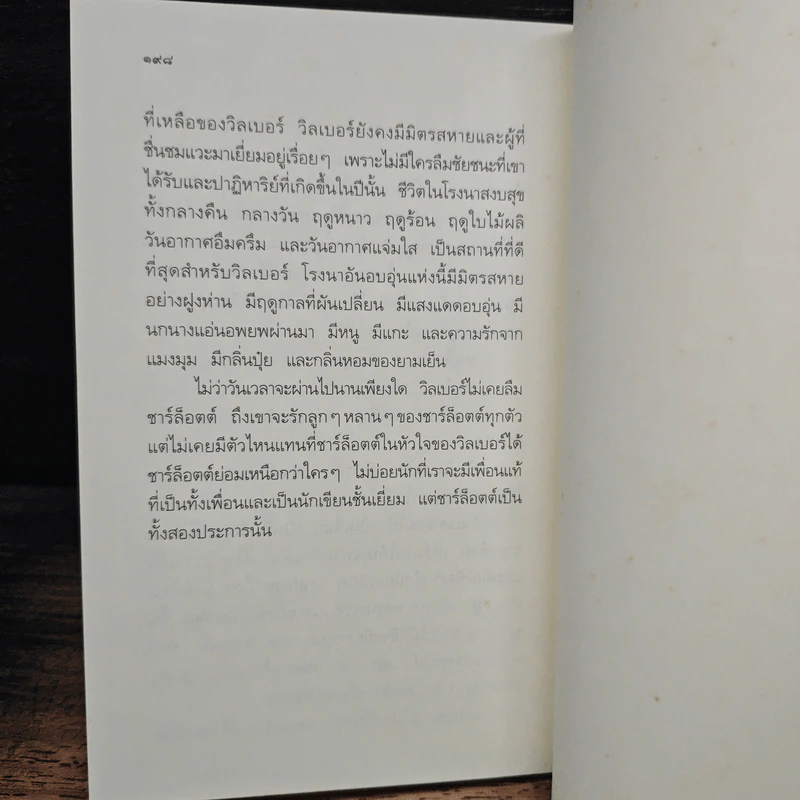 ๑๙๘
ที่เหลือของวิลเบอร์ วิลเบอร์ยังคงมีมิตรสหายและผู้ที่
ชื่นชมแวะมาเยี่ยมอยู่เรื่อยๆ เพราะไม่มีใครลืมชัยชนะที่เขา
ได้รับและปาฏิหาริย์ที่เกิดขึ้นในปีนั้น ชีวิตในโรงนาสงบสุข
ทั้งกลางคืน กลางวัน ฤดูหนาว ฤดูร้อน ฤดูใบไม้ผลิ
วันอากาศอึมครึม และวันอากาศแจ่มใส เป็นสถานที่ที่ดี
ที่สุดสำหรับวิลเบอร์ โรงนาอันอบอุ่นแห่งนี้มีมิตรสหาย
อย่างฝูงห่าน มีฤดูกาลที่ผันเปลี่ยน มีแสงแดดอบอุ่น มี
นกนางแอ่นอพยพผ่านมา มีหนู มีแกะ และความรักจาก
แมงมุม มีกลิ่นปุ๋ย และกลิ่นหอมของยามเย็น
ไม่ว่าวันเวลาจะผ่านไปนานเพียงใด วิลเบอร์ไม่เคยลืม
ชาร์ล็อตต์ ถึงเขาจะรักลูกๆหลานๆของชาร์ล็อตต์ทุกตัว
แต่ไม่เคยมีตัวไหนแทนที่ชาร์ล็อตต์ในหัวใจของวิลเบอร์ได้
ชาร์ล็อตต์ย่อมเหนือกว่าใครๆ ไม่บ่อยนักที่เราจะมีเพื่อนแท้
ที่เป็นทั้งเพื่อนและเป็นนักเขียนชั้นเยี่ยม แต่ชาร์ล็อตต์เป็น
ทั้งสองประการนั้น